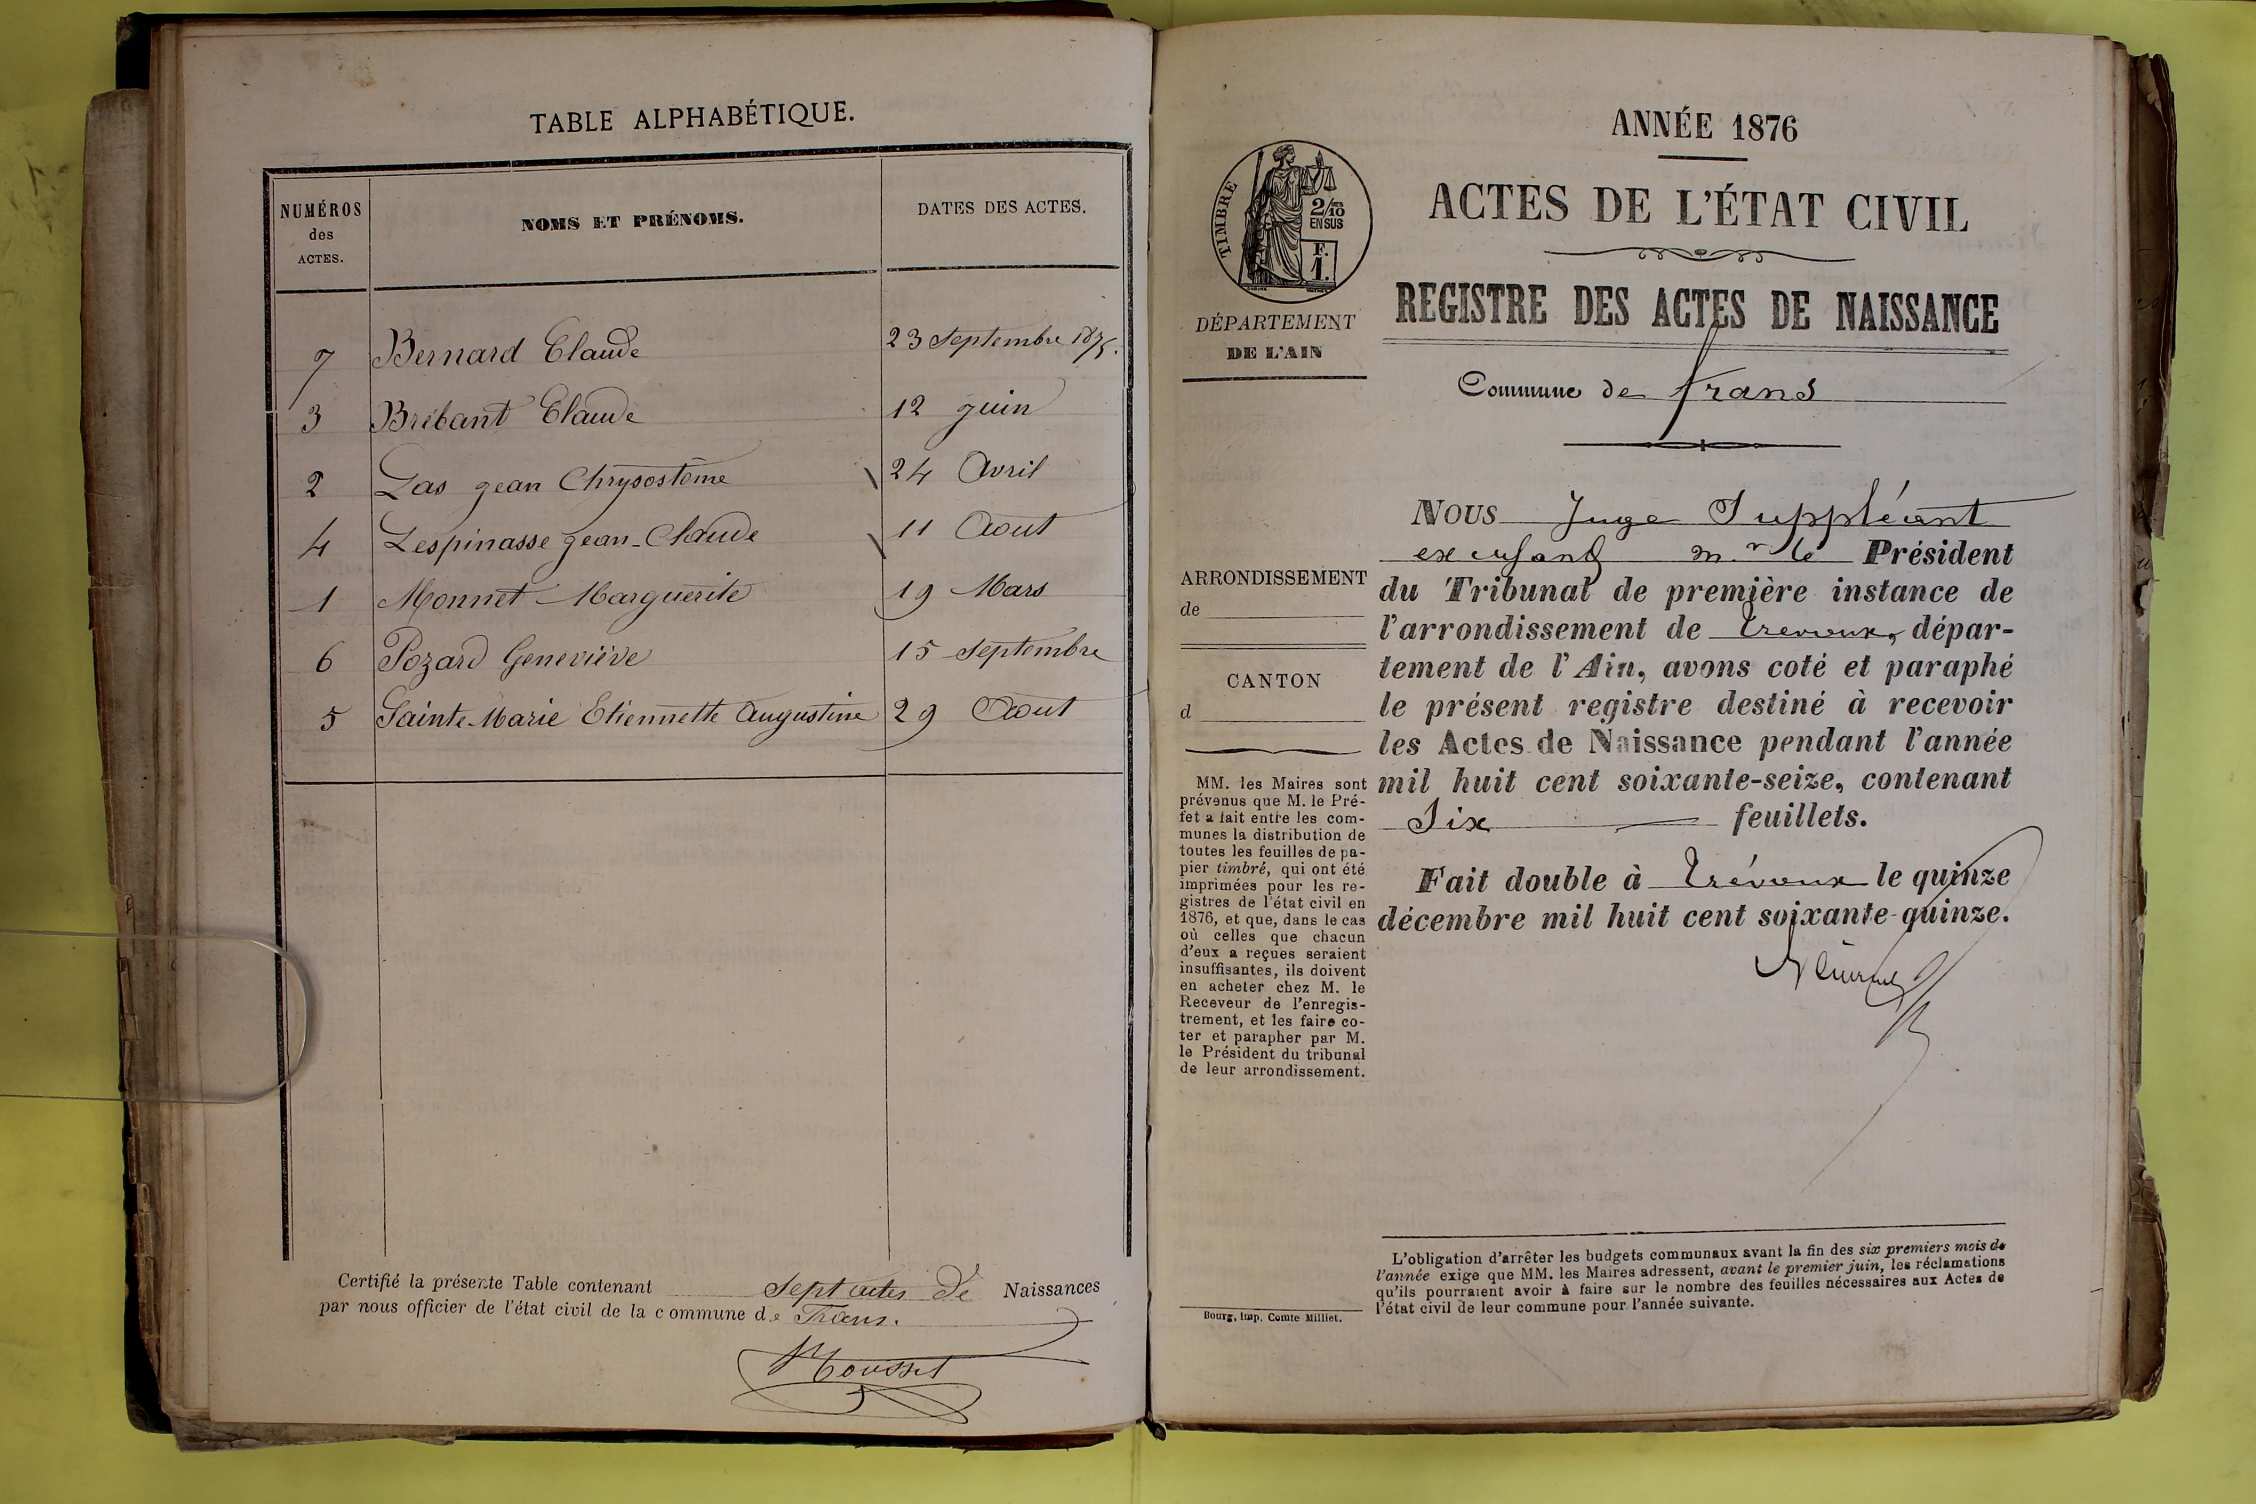 TABLE ALPHABÉTIQUE.
NUMÉROS
des
ACTES.
NOMS ET PRÉNOMS.
DATES DES ACTES.
7 Bernard Claude 23 Septembre 1875.
3 Brébant Claude 12 juin
2 Las jean Chrysostôme 24 Avril
4 Lespinasse jean-Claude 11 Aout
1 Monnet Marguerite 19 Mars
6 Pozard Geneviève 15 Septembre
5 Sainte-Marie Etiennette Augustine 29 Aout
Certifié la présente Table contenant sept actes de Naissances
par nous officier de l'état civil de la commune de Frans.
Mousset
ANNÉE 1876
ACTES DE L'ÉTAT CIVIL
REGISTRE DES ACTES DE NAISSANCE
Commune de Frans
TIMBRE
2/10
EN SUS
F.
1.
DÉPARTEMENT
DE L'AIN
ARRONDISSEMENT
de
CANTON
d
MM. les Maires sont
prévenus que M. le Pré-
fet a fait entre les com-
munes la distribution de
toutes les feuilles de pa-
pier timbré, qui ont été
imprimées pour les re-
gistres de l'état civil en
1876, et que, dans le cas
où celles que chacun
d'eux a reçues seraient
insuffisantes, ils doivent
en acheter chez M. le
Receveur de l'enregis-
trement, et les faire co-
ter et parapher par M.
le Président du tribunal
de leur arrondissement.
Bourg, imp. Comte Milliet.
NOUS Juge Suppléant
mr le Président
du Tribunal de première instance de
l'arrondissement de Trévoux, dépar-
tement de l'Ain, avons coté et paraphé
le présent registre destiné à recevoir
les Actes de Naissance pendant l'année
mil huit cent soixante-seize, contenant
Six feuillets.
Fait double à Trévoux le quinze
décembre mil huit cent soixante-quinze.
L'obligation d'arrêter les budgets communaux avant la fin des six premiers mois de
l'année exige que MM. les Maires adressent, avant le premier juin, les réclamations
qu'ils pourraient avoir à faire sur le nombre des feuilles nécessaires aux Actes de
l'état civil de leur commune pour l'année suivante.